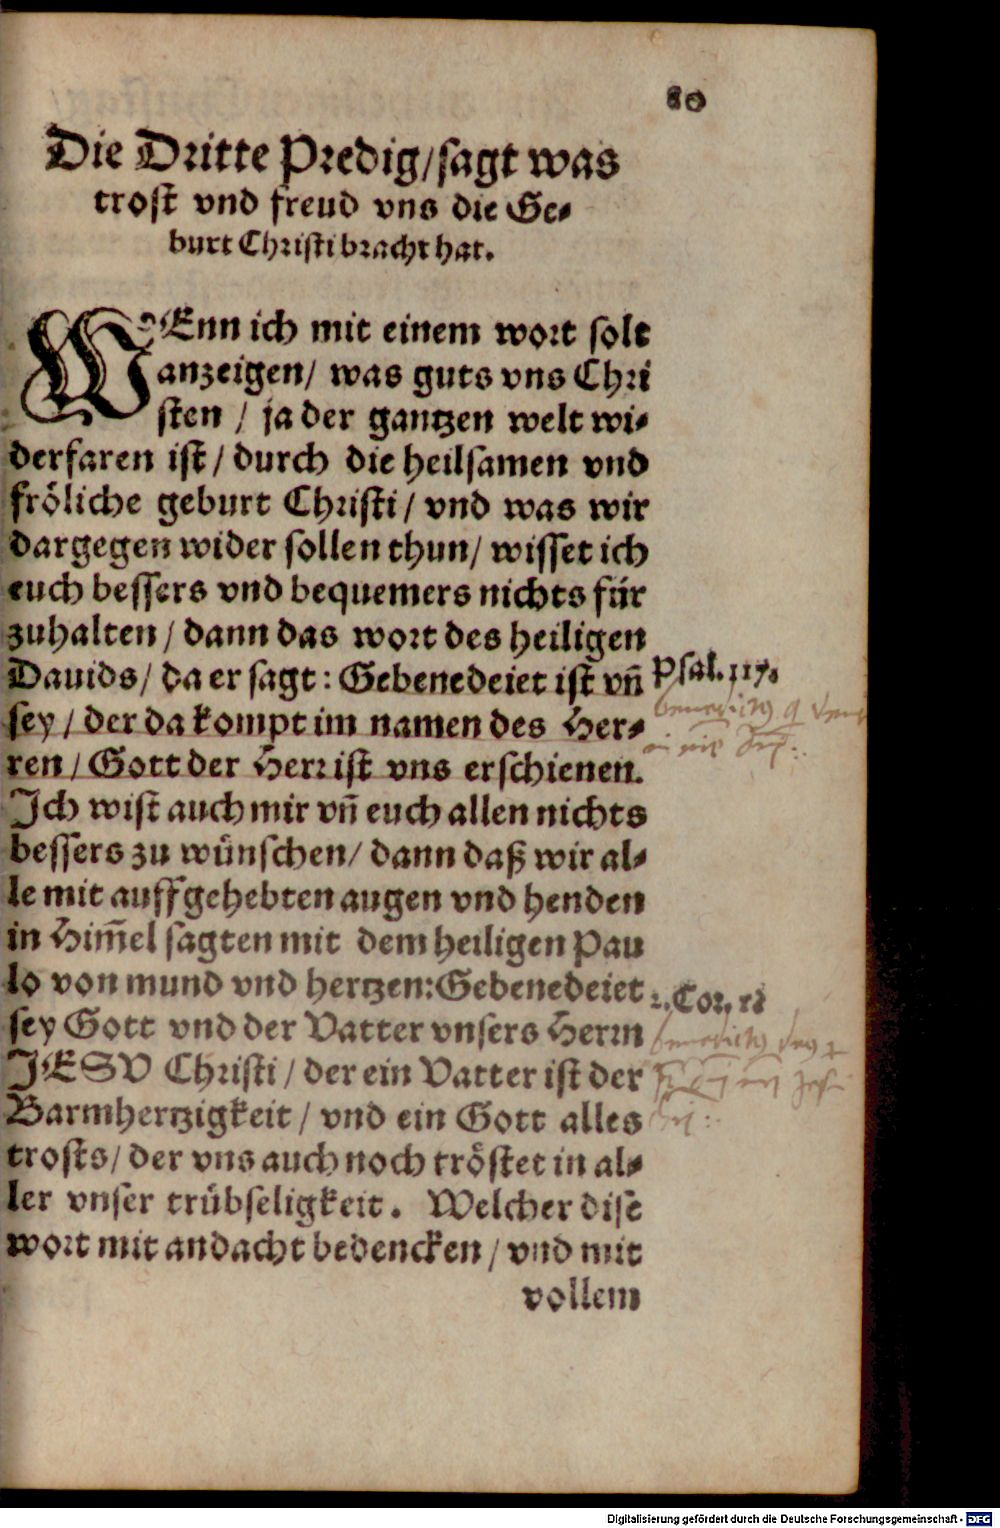 80
Die Dritte Predig/ sagt was
trost vnd freud vns die Ge-
burt Christi bracht hat.
WEnn ich mit einem wort solt
anzeigen/ was guts vns Chri
sten / ja der gantzen welt wi-
derfaren ist / durch die heilsamen vnd
fröliche geburt Christi / vnd was wir
dargegen wider sollen thun/ wisset ich
euch bessers vnd bequemers nichts für
zuhalten / dann das wort des heiligen
Dauids/ da er sagt: Gebenedeiet ist vn̄
Psal. 117.
sey / der da kompt im namen des Her-
ren / Gott der Herr ist vns erschienen.
Ich wist auch mir vn̄ euch allen nichts
bessers zu wünschen/ dann daß wir al-
le mit auffgehebten augen vnd henden
in Him̄el sagten mit dem heiligen Pau
lo von mund vnd hertzen: Gebenedeiet
2. Cor. 1
sey Gott vnd der Vatter vnsers Herrn
benedictus deus
JESV Christi / der ein Vatter ist der
Barmhertzigkeit / vnd ein Gott alles
trosts/ der vns auch noch tröstet in al-
ler vnser trübseligkeit. Welcher dise
wort mit andacht bedencken / vnd mit
vollem
Digitalisierung gefördert durch die Deutsche Forschungsgemeinschaft - DFG